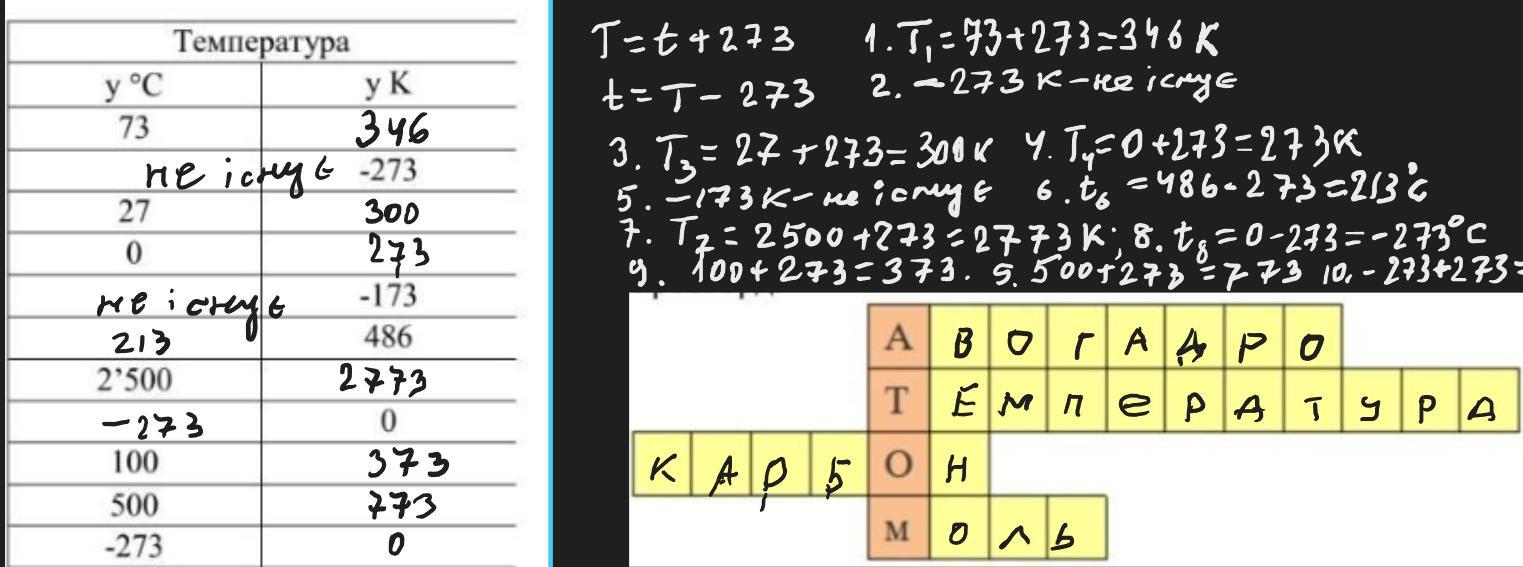 Температура
у °C у К
73 346
не існує -273
27 300
0 273
не існує -173
213 486
2’500 2773
-273 0
100 373
500 773
-273 0
T=t+273 1. T₁=73+273=346 K
t=T-273 2. -273 К-не існує
3. T₃=27+273=300К 4. T₄=0+273=273К
5. -173К-не існує 6. t₆=486-273=213°C
7. T₇=2500+273=2773К; 8. t₈=0-273=-273°C
9. 100+273=373. 9. 500+273=773 10. -273+273=
АВОГАДРО
ТЕМПЕРАТУРА
КАРБОН
МОЛЬ